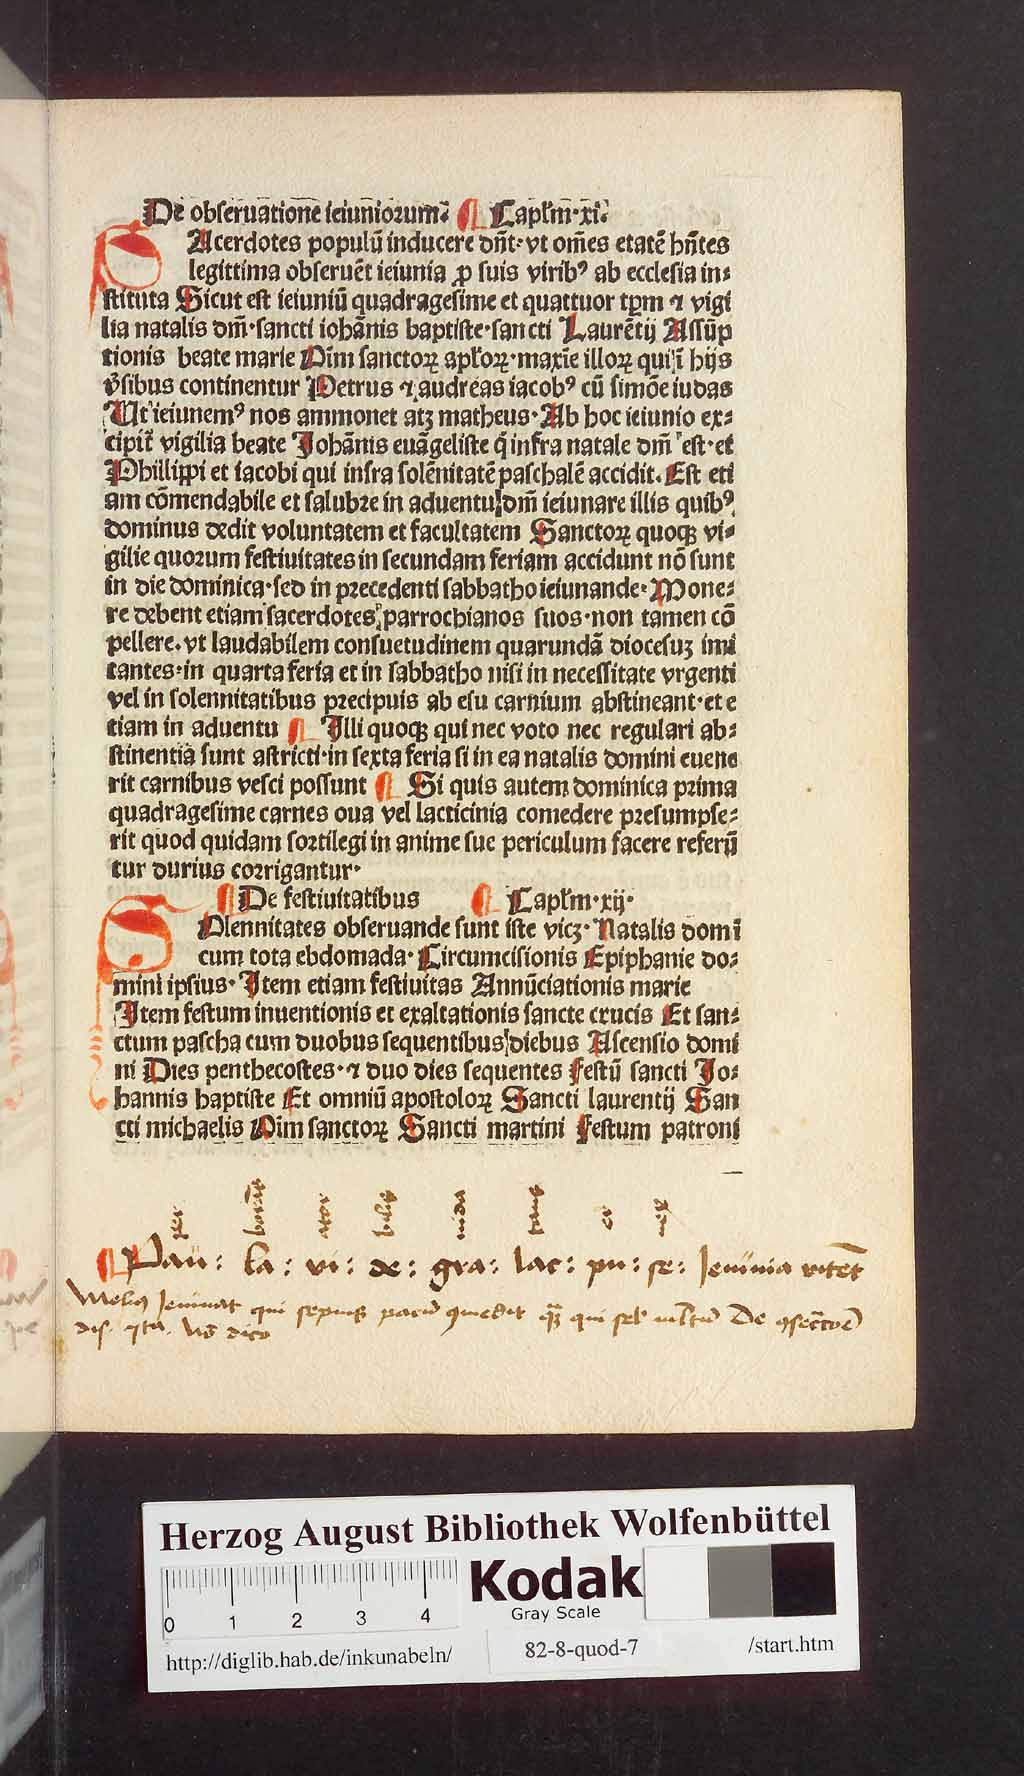 De obseruatione ieiuniorum. Caplm·xi.
SAcerdotes populū inducere dn̄t·vt om̄es etatē hn̄tes
legittima obseruēt ieiunia ꝓ suis viribꝰ ab ecclesia in-
stituta Sicut est ieiuniū quadragesime et quattuor tp̄m ⁊ vigi
lia natalis dm̄·sancti iohānis baptiste·sancti Laurētij Assūp
tionis beate marie Oīm sanctoꝝ apl'oꝝ·maxīe illoꝝ qui ī hijs
v̄sibus continentur Petrus ⁊ audreas iacobꝰ cū simōe iudas
Ut ieiunemꝰ nos ammonet atꝫ matheus·Ab hoc ieiunio ex-
cipit̄ vigilia beate Johānis euāgeliste q̄ infra natale dm̄ est·et
Phillippi et iacobi qui infra solēnitatē paschalē accidit. Est eti
am cōmendabile et salubre in aduentu dm̄ ieiunare illis quibꝰ
dominus dedit voluntatem et facultatem Sanctoꝝ quoqꝫ vi-
gilie quorum festiuitates in secundam feriam accidunt nō sunt
in die dominica·sed in precedenti sabbatho ieiunande·Mone-
re debent etiam sacerdotes parrochianos suos·non tamen cō
pellere.vt laudabilem consuetudinem quarundā diocesuꝫ imi
tantes·in quarta feria et in sabbatho nisi in necessitate vrgenti
vel in solennitatibus precipuis ab esu carnium abstineant·et e
tiam in aduentu Illi quoqꝫ qui nec voto nec regulari ab-
stinentia sunt astricti·in sexta feria si in ea natalis domini euene
rit carnibus vesci possunt Si quis autem dominica prima
quadragesime carnes oua vel lacticinia comedere presumpse-
rit quod quidam sortilegi in anime sue periculum facere referū
tur durius corrigantur·
De festiuitatibus Caplm·xij·
SOlennitates obseruande sunt iste vicꝫ·Natalis domī
cum tota ebdomada·Circumcisionis Epiphanie do-
mini ipsius·Item etiam festiuitas Annūciationis marie
Item festum inuentionis et exaltationis sancte crucis Et san-
ctum pascha cum duobus sequentibus diebus Ascensio domi
ni Dies penthecostes·⁊ duo dies sequentes festū sancti Jo-
hannis baptiste Et omniū apostoloꝝ Sancti laurentij San
cti michaelis Oīm sanctoꝝ Sancti martini Festum patroni
per borāt ator bilis uida tans er
Pau: la: vi: de: gra: lac: pu: se: Jeiunia vitēt
Melius Jeiunat qui
Herzog August Bibliothek Wolfenbüttel
0 1 2 3 4
Kodak
Gray Scale
http://diglib.hab.de/inkunabeln/
82-8-quod-7
/start.htm